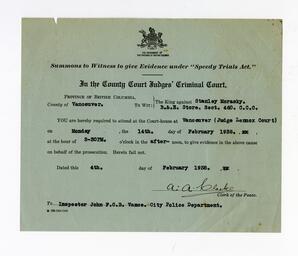 Summons to Witness to give Evidence under "Speedy Trials Act."
In the County Court Judges' Criminal Court.
PROVINCE OF BRITISH COLUMBIA,
County of Vancouver. To Wit: The King against Stanley
B.&E. Store. Sect. 460. C.C.C.
YOU are hereby required to attend at the Court-house at Vancouver (Judge Lennox Court)
on Monday the 14th. day of February 1938.
at the hour of 2-30PM. o'clock in the after- noon, to give evidence in the above cause
on behalf of the prosecution. Herein fail not.
Dated this 4th. day of February 1938.
Clerk of the Peace.
To Inspector John F.C.B. Vance. City Police Department.